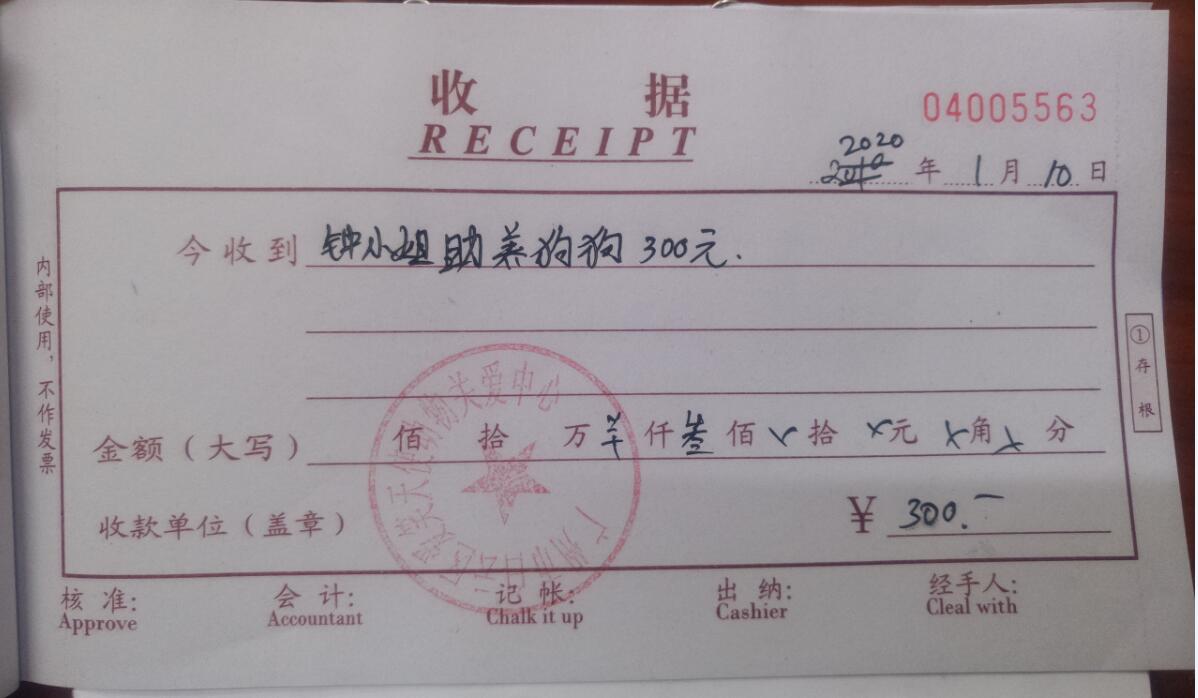 收 据
RECEIPT
04005563
2020年1月10日
今收到 钟小姐助养狗狗300元.
金额（大写） 佰 拾 万 仟 叁 佰 拾 元 角 分
收款单位（盖章） ¥ 300.一
核 准: 会 计: 记 帐: 出 纳: 经手人:
Approve Accountant Chalk it up Cashier Cleal with
内部使用，不作发票
①存根
天使动物关爱中心